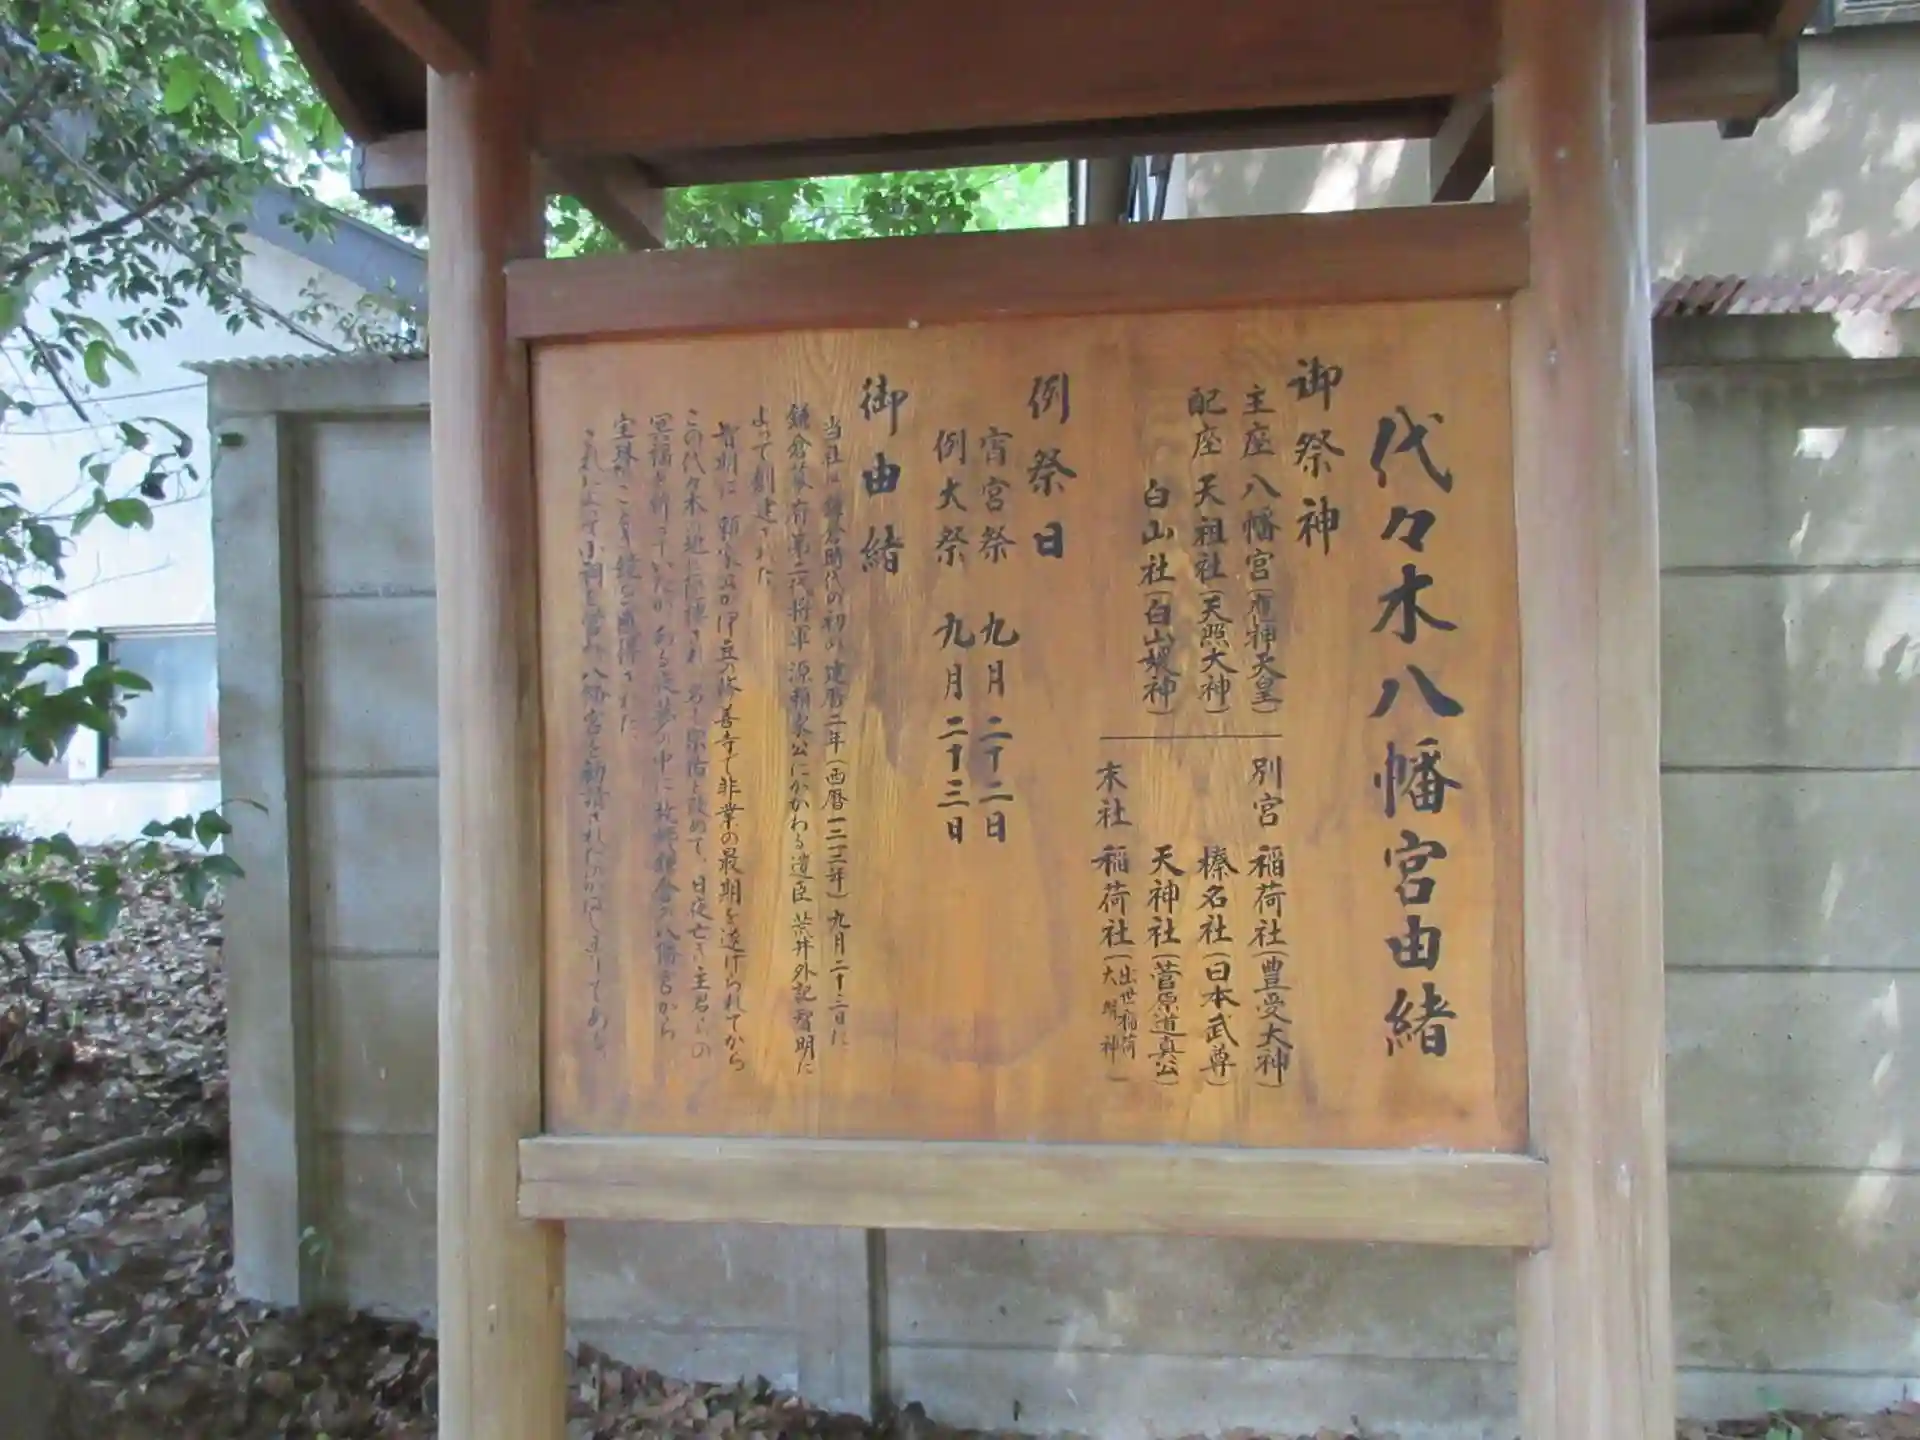 代々木八幡宮由緒
御祭神
主座 八幡宮(應神天皇)
配座 天祖社(天照大神)
白山社(白山媛神)
別宮 稲荷社(豊受大神)
榛名社(日本武尊)
天神社(菅原道真公)
末社 稲荷社(出世稲荷
大明神)
例祭日
宵宮祭 九月二十二日
例大祭 九月二十三日
御由緒
当社は鎌倉時代の初め 建暦二年(西暦一二一二年)九月二十三日に
鎌倉幕府第二代将軍 源頼家公にかかわる遺臣 荒井外記智明に
よって創建された
智明は 頼家公が伊豆の修善寺で非業の最期を遂げられてから
この代々木の地に隠棲され 名も宗祐と改めて、日夜亡き主君の
冥福を祈っていたが ある夜夢の中に 鎌倉の八幡宮から
宝珠のごとき鏡を感得された
これによって小祠を営み 八幡宮を勧請されたのがはじまりである